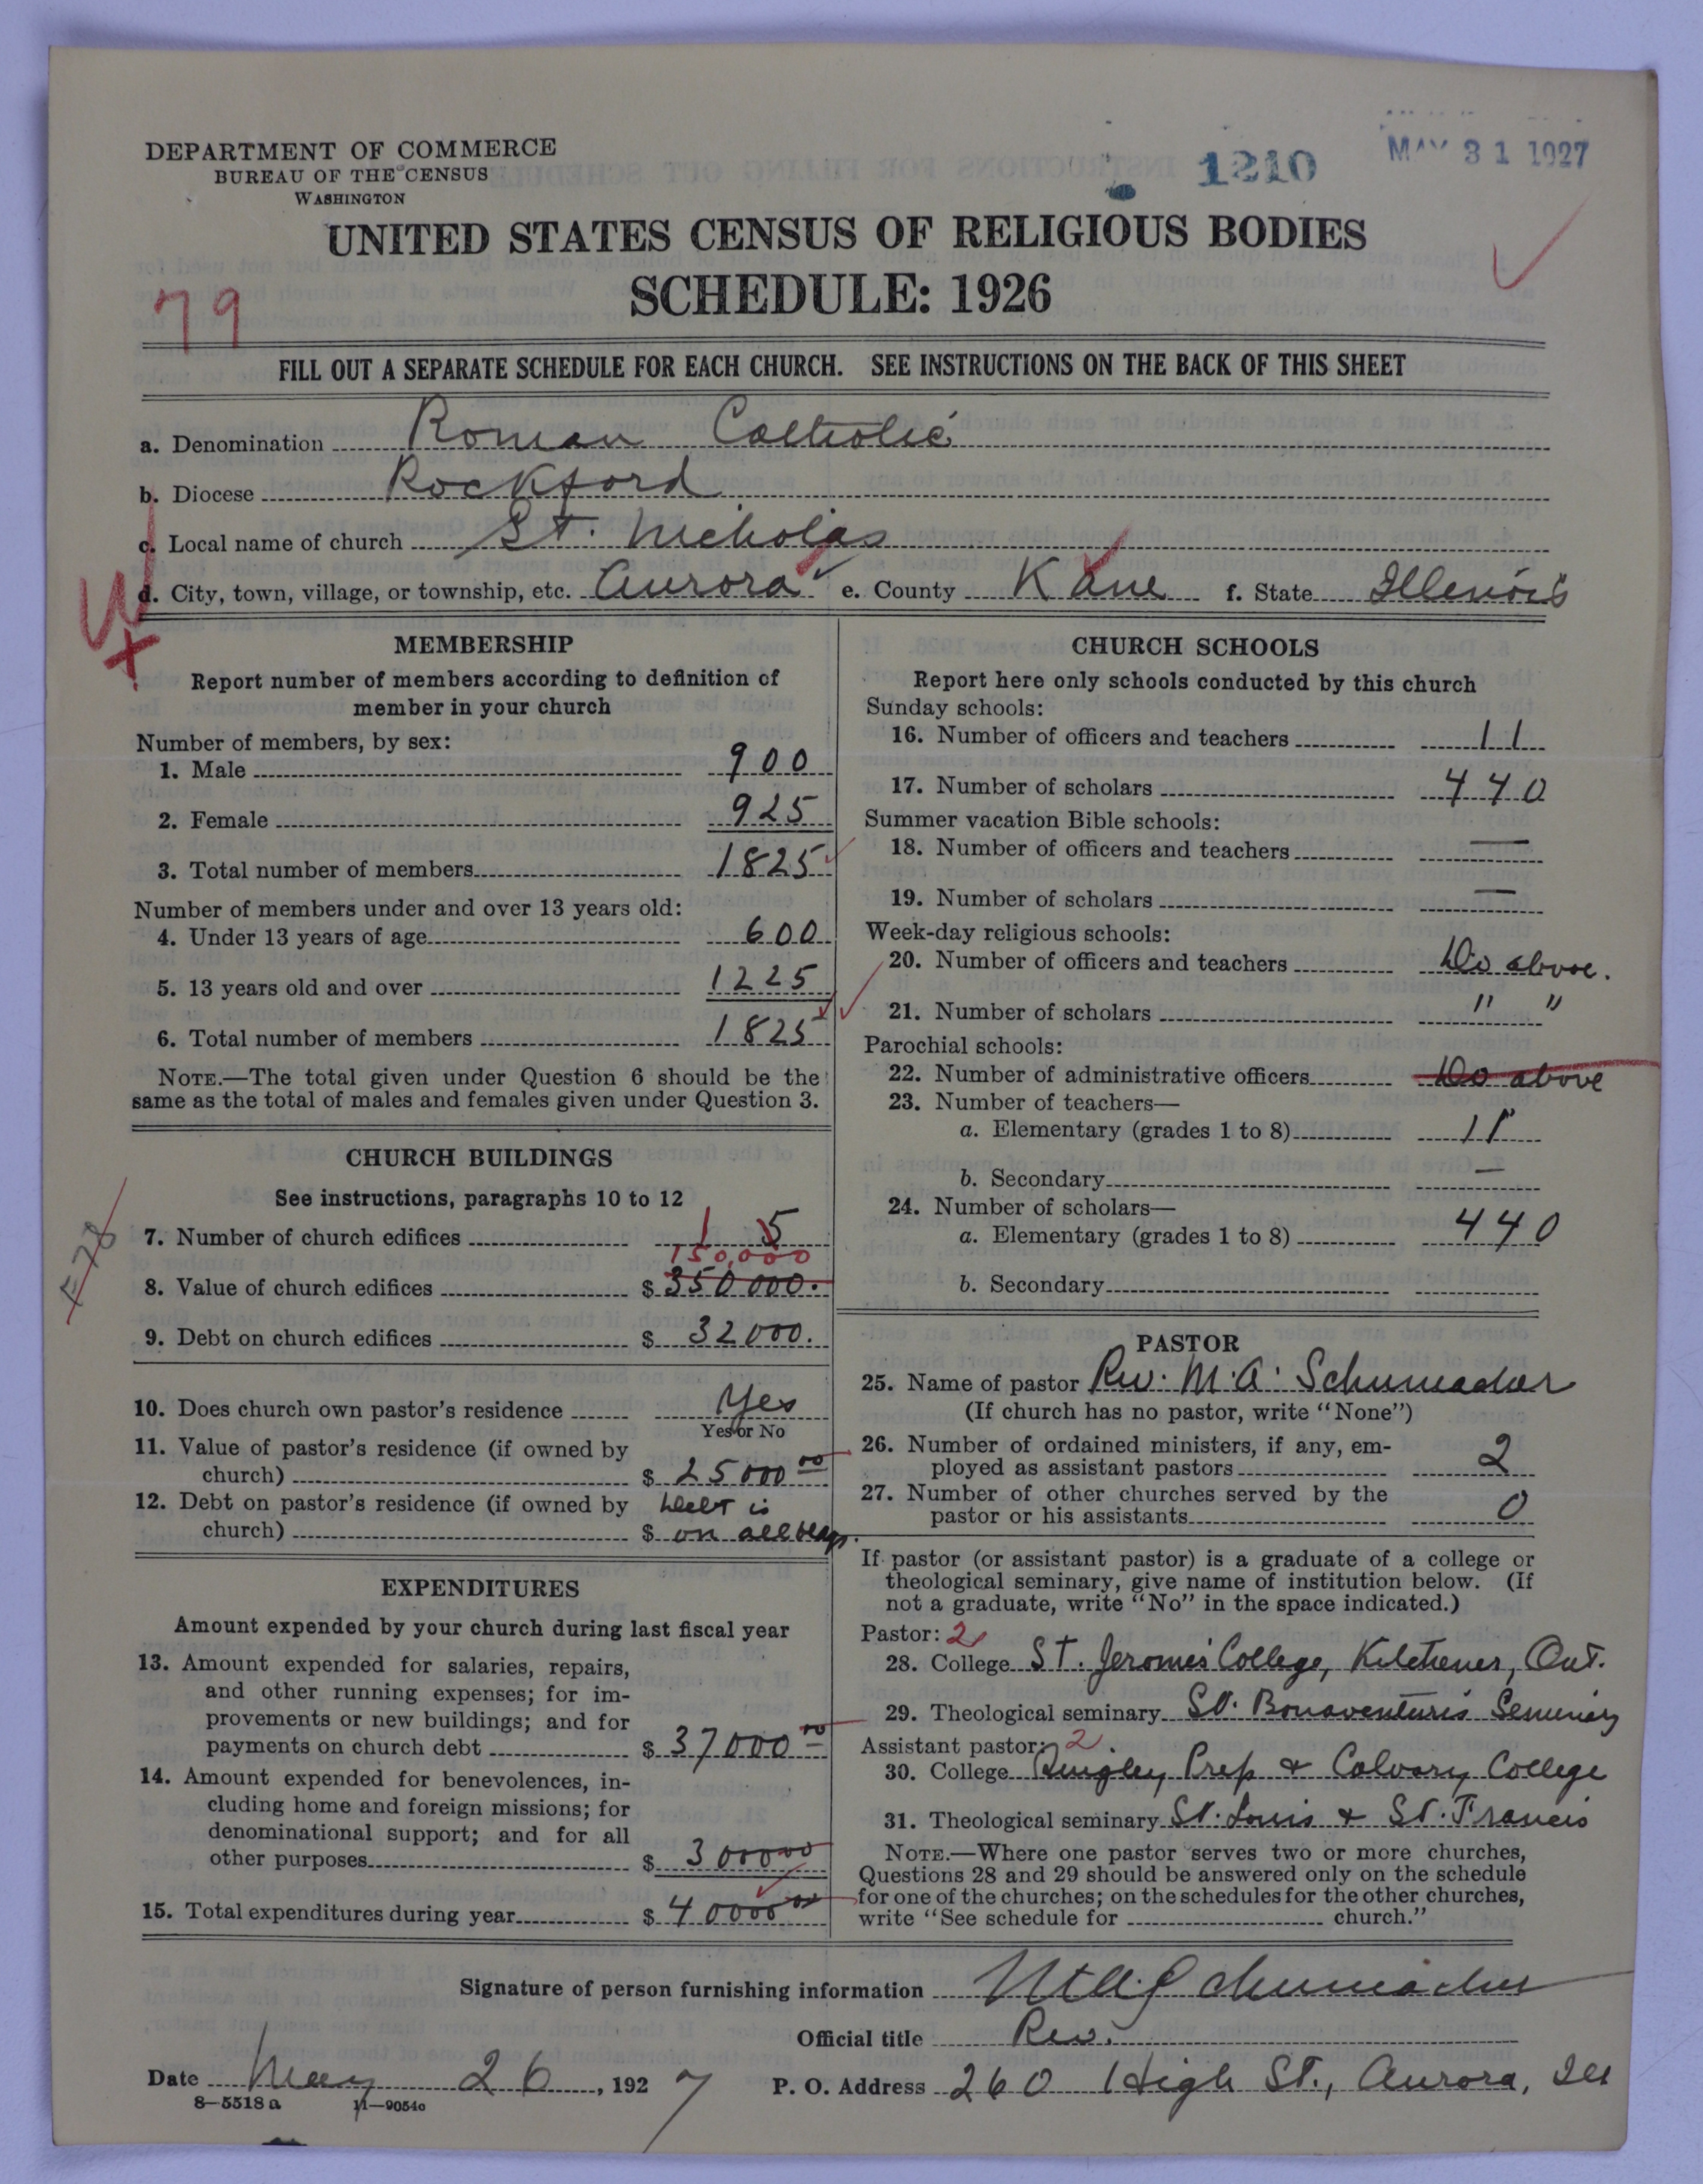 DEPARTMENT OF COMMERCE
BUREAU OF THE CENSUS
WASHINGTON
1210
MAY 31 1927
UNITED STATES CENSUS OF RELIGIOUS BODIES
SCHEDULE: 1926
79
FILL OUT A SEPARATE SCHEDULE FOR EACH CHURCH. SEE INSTRUCTIONS ON THE BACK OF THIS SHEET
a. Denomination Roman Catholic
b. Diocese Rockford
c. Local name of church St. Nicholas
d. City, town, village, or township, etc. Aurora e. County Kane f. State Illinois
MEMBERSHIP
Report number of members according to definition of
member in your church
Number of members, by sex:
1. Male 900
2. Female 925
3. Total number of members 1825
Number of members under and over 13 years old:
4. Under 13 years of age 600
5. 13 years old and over 1225
6. Total number of members 1825
NOTE.—The total given under Question 6 should be the
same as the total of males and females given under Question 3.
CHURCH BUILDINGS
See instructions, paragraphs 10 to 12
7. Number of church edifices 1 5
150,000
8. Value of church edifices $ 350000.
9. Debt on church edifices $ 32000.
10. Does church own pastor's residence Yes
Yes or No
11. Value of pastor's residence (if owned by
church) $ 25000 00
12. Debt on pastor's residence (if owned by Debt is
church) $ on all
EXPENDITURES
Amount expended by your church during last fiscal year
13. Amount expended for salaries, repairs,
and other running expenses; for im-
provements or new buildings; and for
payments on church debt $ 37000 00
14. Amount expended for benevolences, in-
cluding home and foreign missions; for
denominational support; and for all
other purposes $ 3000 00
15. Total expenditures during year $ 40000 00
CHURCH SCHOOLS
Report here only schools conducted by this church
Sunday schools:
16. Number of officers and teachers 11
17. Number of scholars 440
Summer vacation Bible schools:
18. Number of officers and teachers —
19. Number of scholars —
Week-day religious schools:
20. Number of officers and teachers Do above.
21. Number of scholars " "
Parochial schools:
22. Number of administrative officers Do above
23. Number of teachers—
a. Elementary (grades 1 to 8) 11
b. Secondary —
24. Number of scholars—
a. Elementary (grades 1 to 8) 440
b. Secondary
PASTOR
25. Name of pastor Rev. M. A. Schumacher
(If church has no pastor, write "None")
26. Number of ordained ministers, if any, em-
ployed as assistant pastors 2
27. Number of other churches served by the
pastor or his assistants 0
If pastor (or assistant pastor) is a graduate of a college or
theological seminary, give name of institution below. (If
not a graduate, write "No" in the space indicated.)
Pastor: 2
28. College St. Jerome's College, Kitchener, Ont.
29. Theological seminary St. Bonaventure's Seminary
Assistant pastor: 2
30. College Prep & Calvary College
31. Theological seminary St. Louis & St. Francis
NOTE.—Where one pastor serves two or more churches,
Questions 28 and 29 should be answered only on the schedule
for one of the churches; on the schedules for the other churches,
write "See schedule for church."
Signature of person furnishing information M. A. Schumacher
Official title Rev.
Date May 26, 1927 P. O. Address 260 High St., Aurora, Ill
8—5518 a 11—9054o